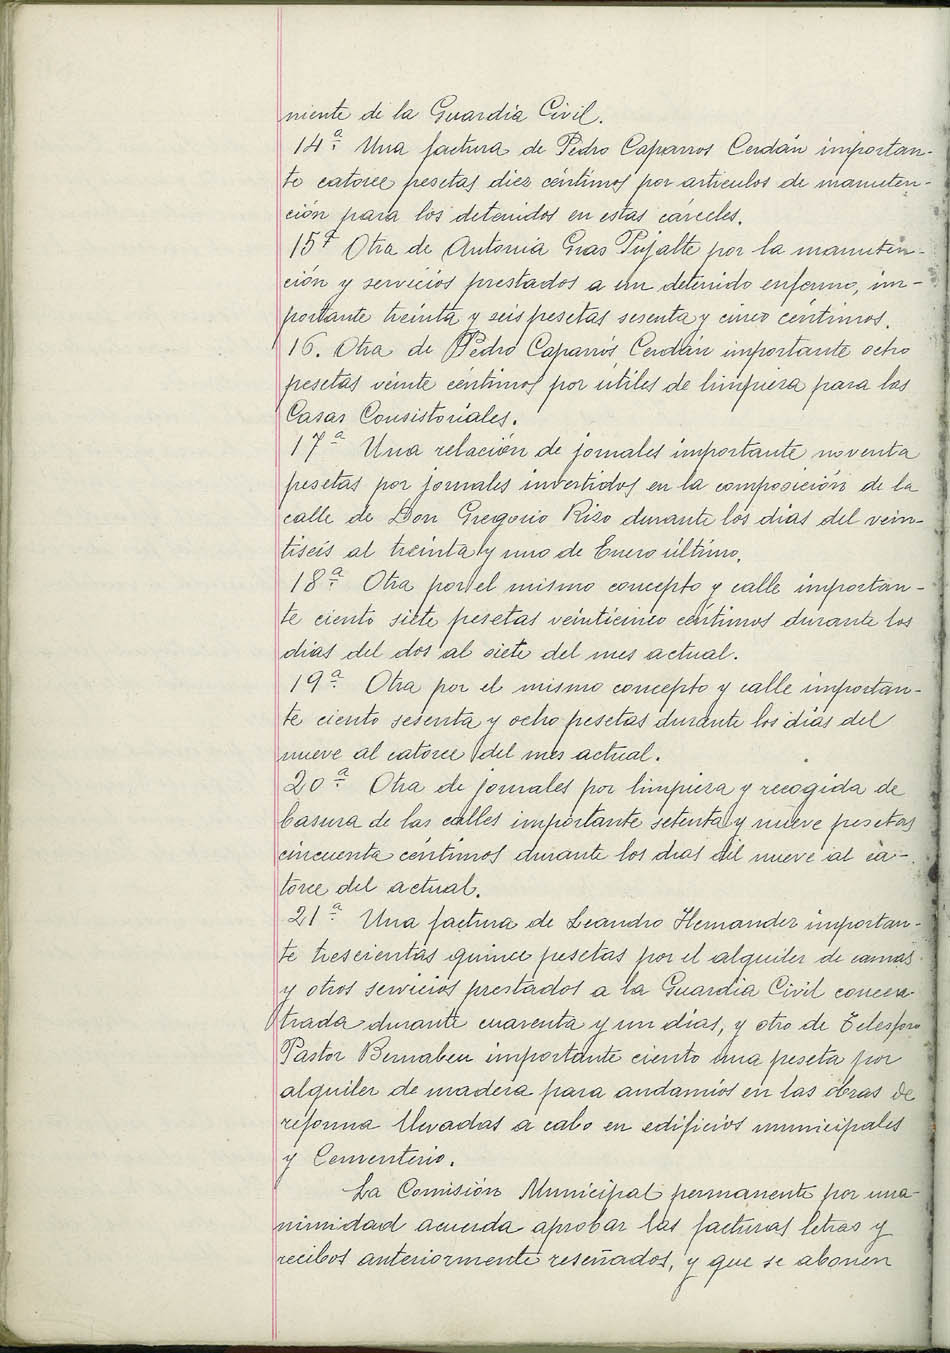 niente de la Guardia Civil.
14ª Una factura de Pedro Caparros Cerdán importan-
te catorce pesetas diez céntimos por articulos de manuten-
ción para los detenidos en estas cárceles.
15ª Otra de Antonia Gras Pujalte por la manuten-
ción y servicios prestados a un detenido enfermo, im-
portante treinta y seis pesetas sesenta y cinco céntimos.
16. Otra de Pedro Caparrós Cerdán importante ocho
pesetas veinte céntimos por útiles de limpieza para las
Casas Consistoriales.
17ª Una relación de jornales importante noventa
pesetas por jornales invertidos en la composición de la
calle de Don Gregorio Rizo durante los dias del vein-
tiseis al treinta y uno de Enero último.
18ª Otra por el mismo concepto y calle importan-
te ciento siete pesetas veinticinco céntimos durante los
dias del dos al siete del mes actual.
19ª Otra por el mismo concepto y calle importan-
te ciento sesenta y ocho pesetas durante los dias del
nueve al catorce del mes actual.
20ª Otra de jornales por limpieza y recogida de
basura de las calles importante setenta y nueve pesetas
cincuenta céntimos durante los dias del nueve al ca-
torce del actual.
21ª Una factura de Leandro Hernandez importan-
te trescientas quince pesetas por el alquiler de camas
y otros servicios prestados a la Guardia Civil concen-
trada durante cuarenta y un días, y otro de Telesforo
Pastor Bernabeu importante ciento una peseta por
alquiler de madera para andamios en las obras de
reforma llevadas a cabo en edificios municipales
y Cementerio.
La Comisión Municipal permanente por una-
nimidad acuerda aprobar las facturas letras y
recibos anteriormente reseñados, y que se abonen